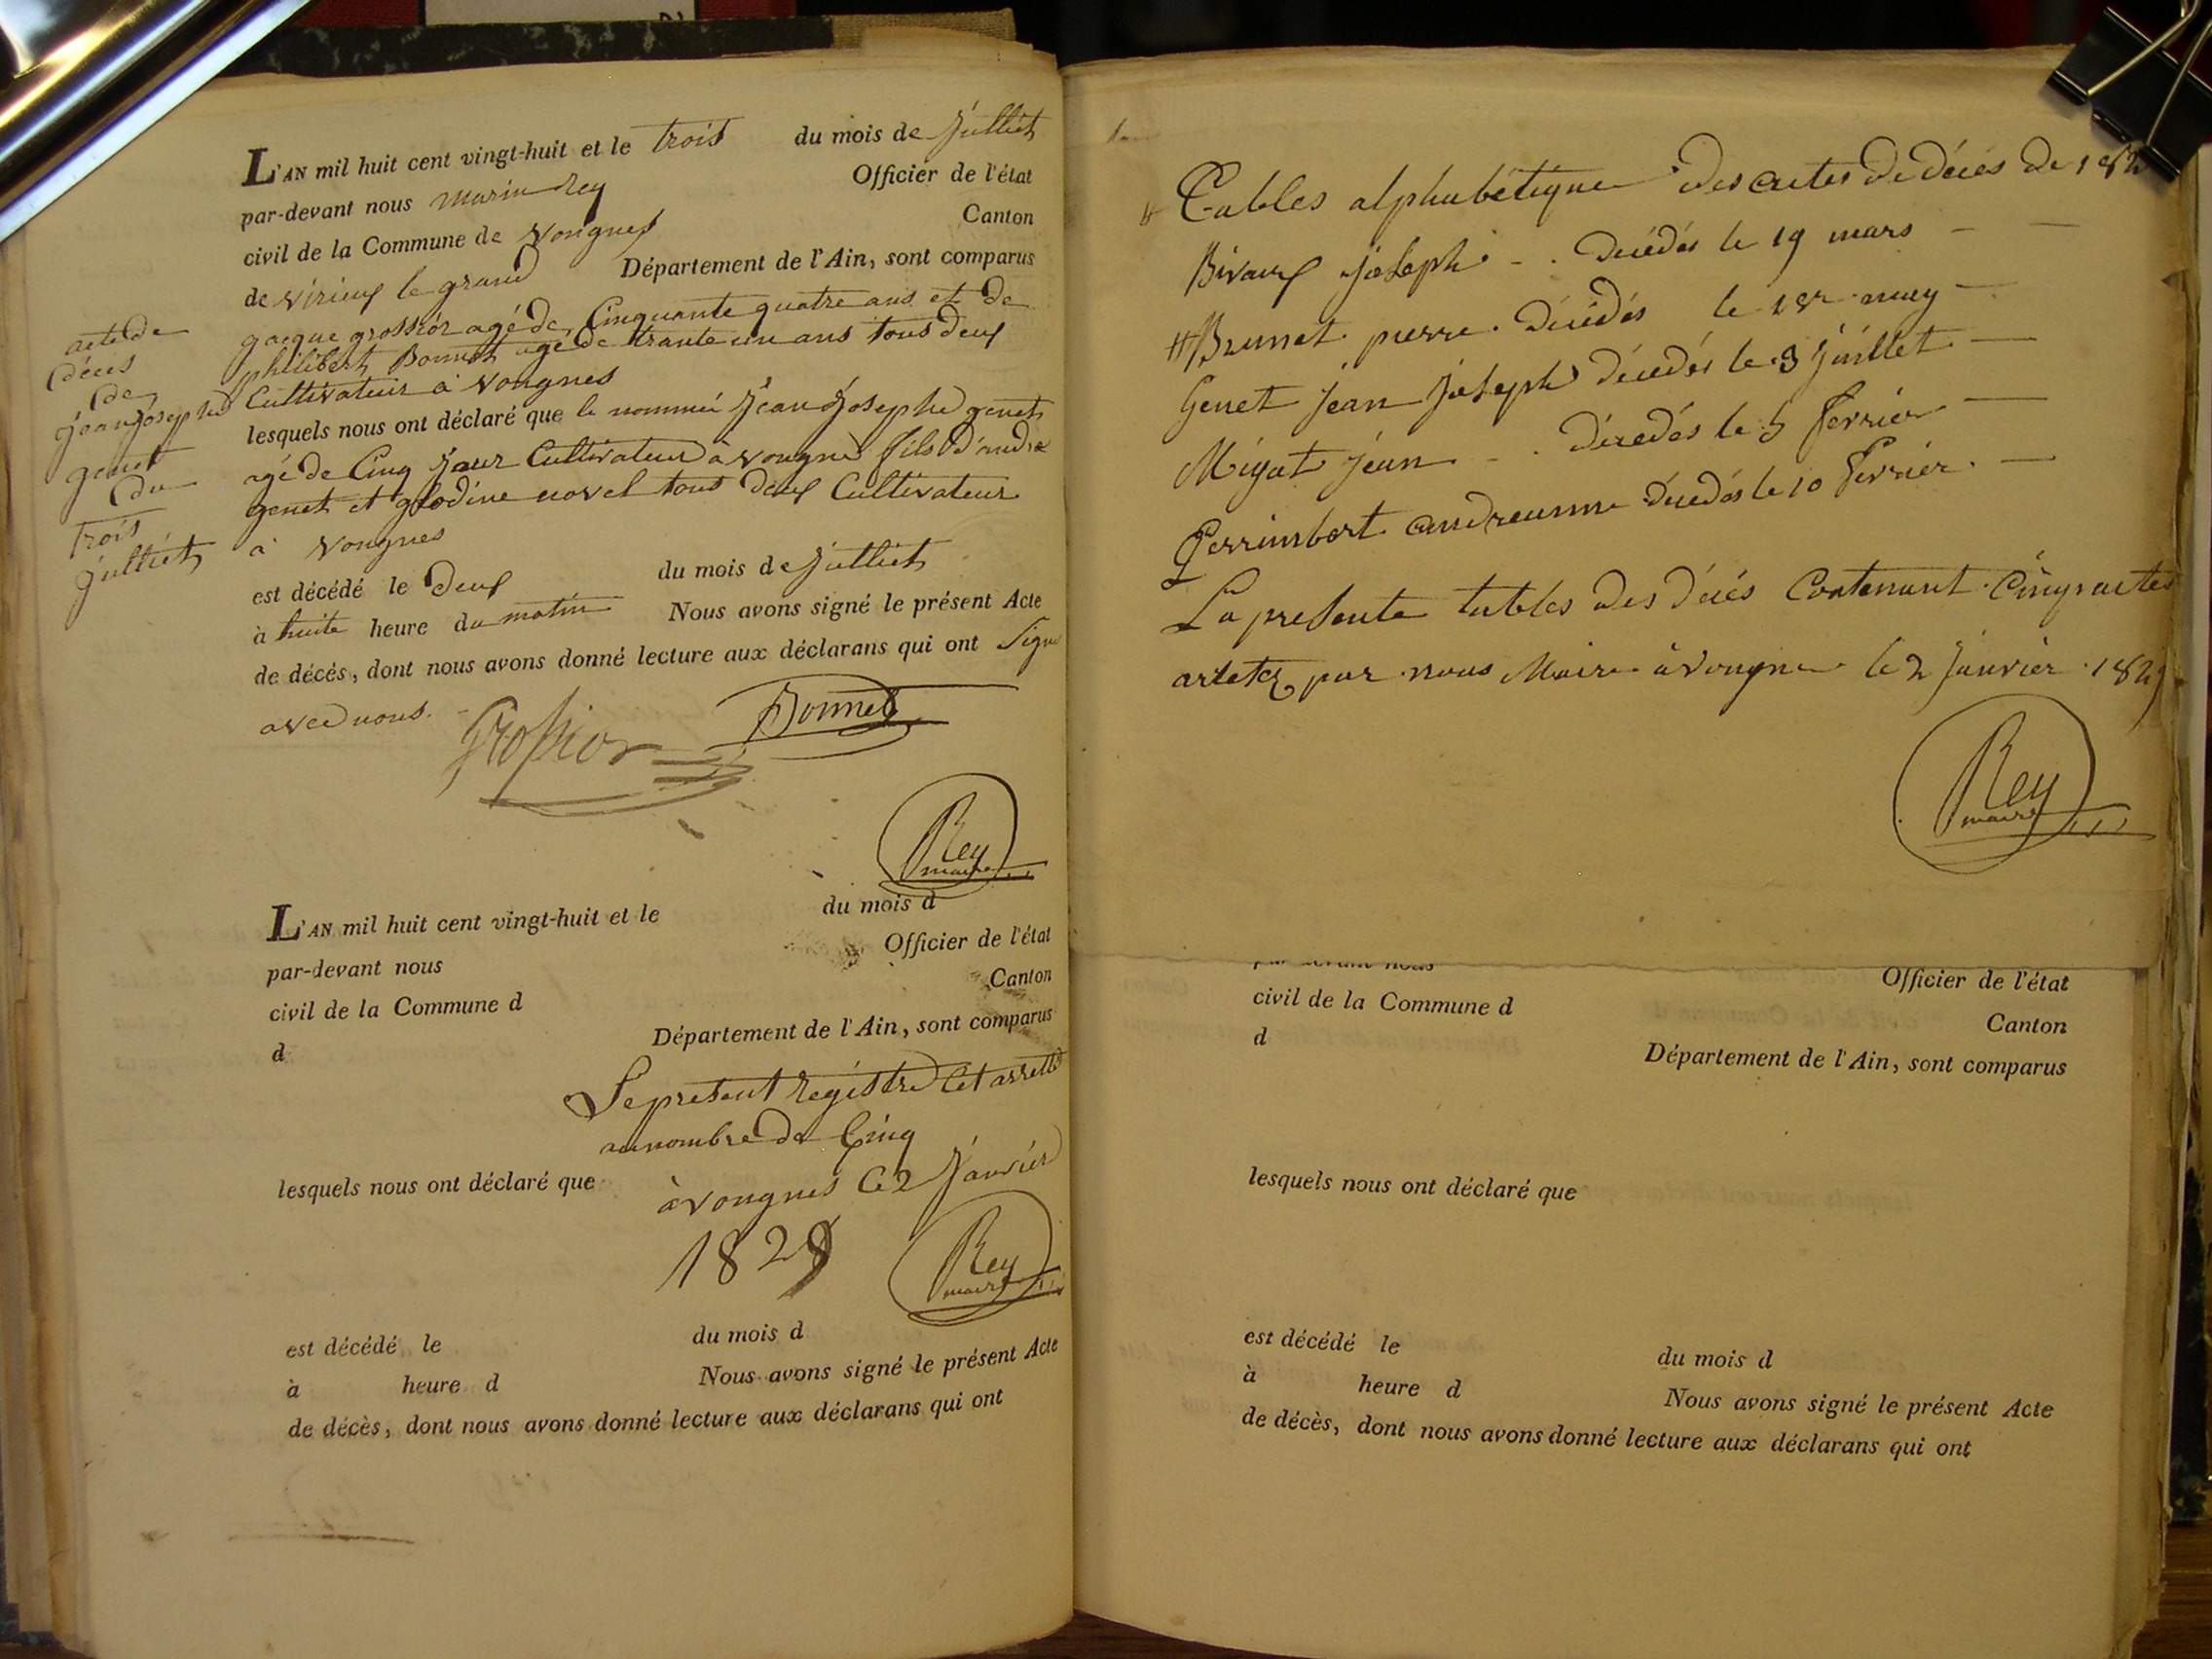 L'AN mil huit cent vingt-huit et le trois du mois de Julliet
par-devant nous marin Rey Officier de l'état
civil de la Commune de vongnes Canton
de virieux le grand Département de l'Ain, sont comparus
gacque grossior agé de Cinquante quatre ans et de
philibert Bonnet agé de trante un ans tous deux
Cultivateur à vongnes
lesquels nous ont déclaré que le nommé Jean Josephe genet
agé de Cinq jour Cultivateur à vongne fils d'andre
genet et glodine novel tous deux Cultivateur
a vongnes
est décédé le deux du mois de Julliet
à huite heure du matin Nous avons signé le présent Acte
de décès, dont nous avons donné lecture aux déclarans qui ont Signé
avec nous.
acte de
décés
de
jean josephe
genet
du
trois
julliet
Grossior
Bonnet
Rey
maire
L'AN mil huit cent vingt-huit et le du mois d
par-devant nous Officier de l'état
civil de la Commune d Canton
d Département de l'Ain, sont comparus
Le present registre Cet arretté
au nombre de Cinq
lesquels nous ont déclaré que
à vongnes Ce 2 Janvier
1829
Rey
maire
est décédé le du mois d
à heure d Nous avons signé le présent Acte
de décès, dont nous avons donné lecture aux déclarans qui ont
Tables alphabétique des actes de décés de 182
Bivaux joseph décédés le 19 mars
Brunet pierre décédés le 1er may
Genet jean joseph décédés le 3 juillet
Migat jean décedés le 5 fevrier
Perrimbert andreanne décedés le 10 fevrier
La presente tables des décés Contenant Cinq actes
arretez par nous Maire à vongne le 2 Janvier 1829
Rey
maire
par-devant nous
Officier de l'état
civil de la Commune d Canton
d Département de l'Ain, sont comparus
lesquels nous ont déclaré que
est décédé le du mois d
à heure d Nous avons signé le présent Acte
de décès, dont nous avons donné lecture aux déclarans qui ont